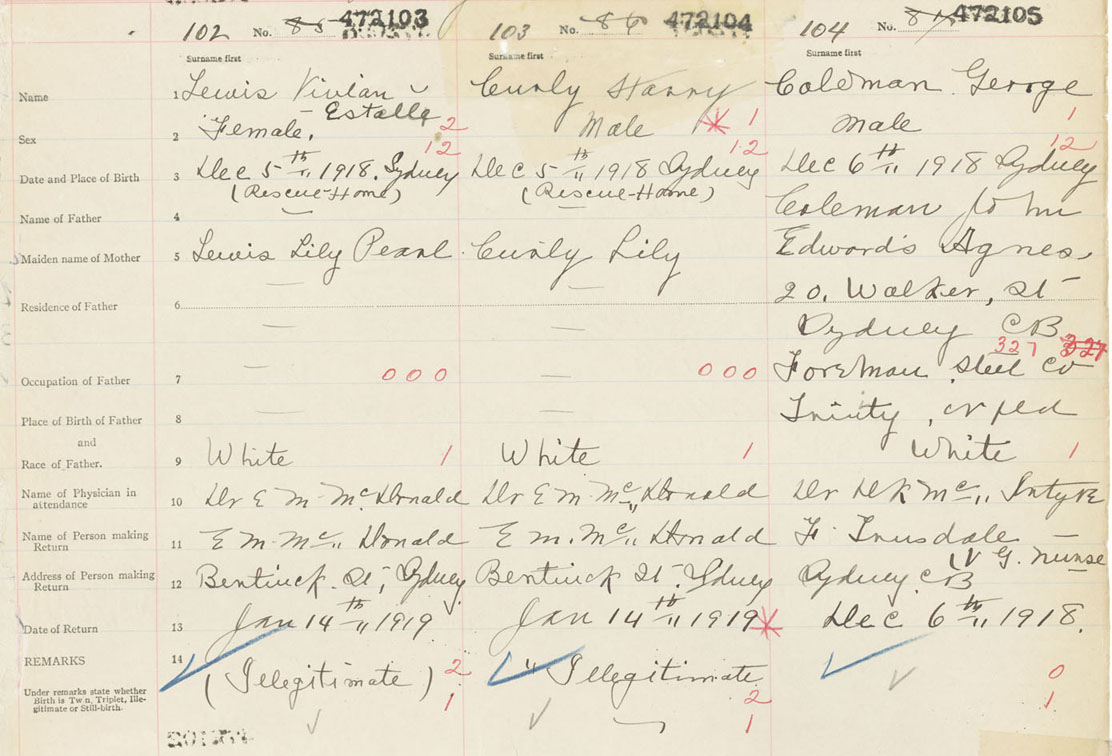 102 No. 85 472103
103 No. 86 472104
104 No. 87 472105
Surname first
Surname first
Surname first
Name 1 Lewis Vivian Estalla
Curly Harry
Coleman George
Sex 2 Female. 2
Male 1
Male 1
Date and Place of Birth 3 Dec 5th 1918. Sydney 12
(Rescue-Home)
Dec 5th 1918 Sydney 12
(Rescue-Home)
Dec 6th 1918 Sydney 12
Name of Father 4 —
—
Coleman John
Maiden name of Mother 5 Lewis Lily Pearl
Curly Lily
Edwards Agnes
Residence of Father 6 —
—
20. Walker, St
Sydney CB
327 327
Occupation of Father 7 — 000
— 000
Foreman Steel Co
Place of Birth of Father 8 —
—
Trinity, 
and
Race of Father. 9 White 1
White 1
White 1
Name of Physician in
attendance 10 Dr E M. McDonald
Dr E M. McDonald
Dr D K McIntyre
Name of Person making
Return 11 E M. McDonald
E M. McDonald
F. Trusdale
V G. Nurse
Address of Person making
Return 12 Bentinck St, Sydney
Bentinck St. Sydney
Sydney CB
Date of Return 13 Jan 14th 1919
Jan 14th 1919
Dec 6th 1918.
REMARKS 14 (Illegitimate) 2
" Illegitimate
0
Under remarks state whether
Birth is Twin, Triplet, Ille-
gitimate or Still-birth.
1
2
1
1